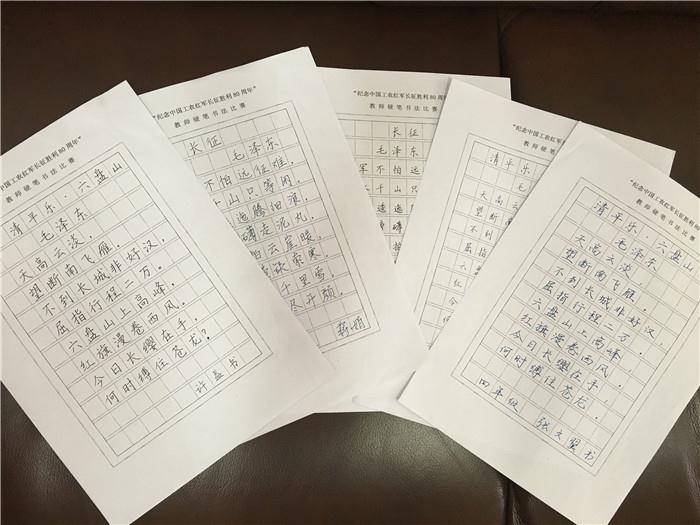 “纪念中国工农红军长征胜利80周年”
教师硬笔书法比赛
清平乐·六盘山
毛泽东
天高云淡，
望断南飞雁。
不到长城非好汉，
屈指行程二万。
六盘山上高峰，
红旗漫卷西风。
今日长缨在手，
何时缚住苍龙？
许孟书
“纪念中国工农红军长征胜利80周年”
教师硬笔书法比赛
长征
毛泽东
不怕远征难，
水千山只等闲，
逶腾细浪，
礴走泥丸，
拍云崖暖，
索寒，
千里雪，
尽开颜，
“纪念中国工农红军长征胜利80周年”
教师硬笔书法比赛
长征
毛泽东
军不怕远
水千山只
逶迤
磅礴
“纪念中国工农红军长征胜利80
教师硬笔书法比赛
清平乐
毛
天高云
望断
不到
屈指
六
红
今
何
“纪念中国工农红军长征胜利80周年”
教师硬笔书法比赛
清平乐·六盘山
毛泽东
天高云淡，
望断南飞雁。
不到长城非好汉，
屈指行程二万。
六盘山上高峰，
红旗漫卷西风。
今日长缨在手，
何时缚住苍龙。
四年级 张文翼书